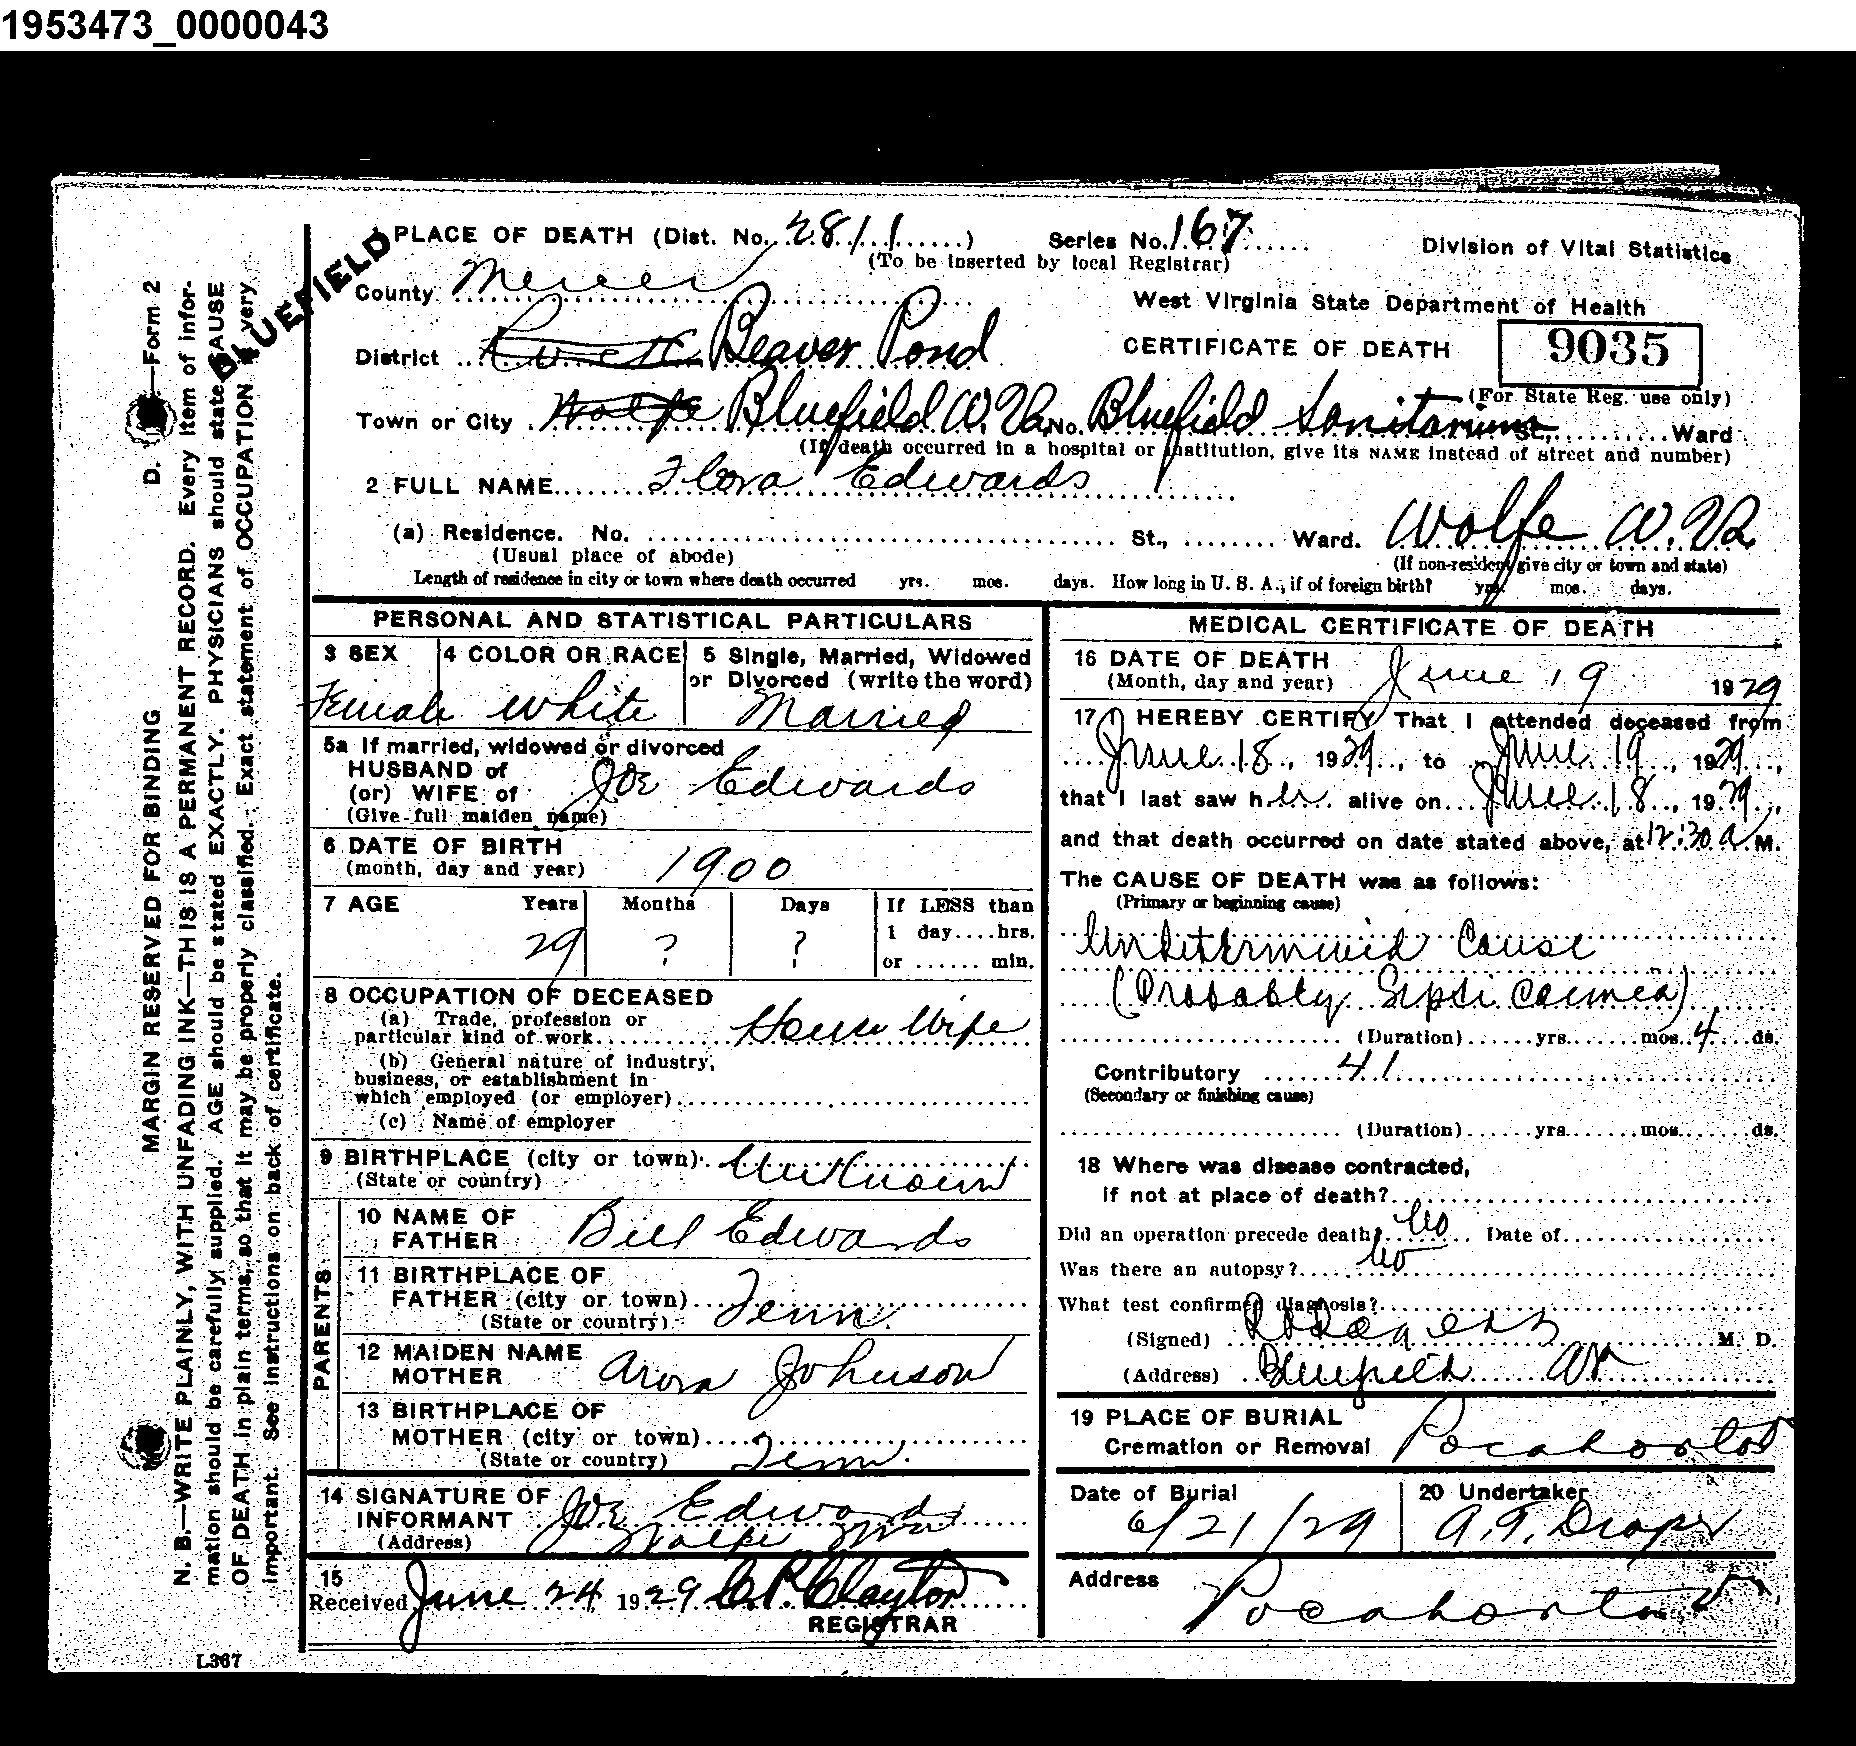 1953473_0000043
PLACE OF DEATH (Dist. No. 2811) Series No. 167 Division of Vital Statistics
(To be inserted by local Registrar)
BLUEFIELD
County Mercer
West Virginia State Department of Health
District Beaver Pond CERTIFICATE OF DEATH 9035
(For State Reg. use only)
Town or City Wolfe Bluefield W. Va. No. Bluefield Sanitarium St., Ward
(If death occurred in a hospital or institution, give its NAME instead of street and number)
2 FULL NAME Flora Edwards
(a) Residence. No. St., Ward. Wolfe W. Va
(Usual place of abode) (If non-resident give city or town and state)
Length of residence in city or town where death occurred yrs. mos. days. How long in U. S. A., if of foreign birth? yrs. mos. days.
PERSONAL AND STATISTICAL PARTICULARS
3 SEX 4 COLOR OR RACE 5 Single, Married, Widowed
or Divorced (write the word)
Female white Married
5a If married, widowed or divorced
HUSBAND of
(or) WIFE of Joe Edwards
(Give full maiden name)
6 DATE OF BIRTH
(month, day and year) 1900
7 AGE Years Months Days If LESS than
1 day....hrs.
29 ? ?
or ...... min.
8 OCCUPATION OF DECEASED
(a) Trade, profession or
particular kind of work House Wife
(b) General nature of industry,
business, or establishment in
which employed (or employer)
(c) Name of employer
9 BIRTHPLACE (city or town) Unknown
(State or country)
PARENTS
10 NAME OF
FATHER Bill Edwards
11 BIRTHPLACE OF
FATHER (city or town) Tenn.
(State or country)
12 MAIDEN NAME
MOTHER Johnson
13 BIRTHPLACE OF
MOTHER (city or town)
(State or country) Tenn.
14 SIGNATURE OF
INFORMANT Joe Edwards
(Address) Wolfe
15
Received June 24 1929 C. P. Clayton
REGISTRAR
MEDICAL CERTIFICATE OF DEATH
16 DATE OF DEATH
(Month, day and year) June 19 1929
17 I HEREBY CERTIFY That I attended deceased from
June 18, 1929, to June 19, 1929,
that I last saw her alive on June 18, 1929,
and that death occurred on date stated above, at 12:30 a M.
The CAUSE OF DEATH was as follows:
(Primary or beginning cause)
Undetermined Cause
(Probably Septicaemea)
(Duration) yrs. mos. 4 ds.
Contributory 41
(Secondary or finishing cause)
(Duration) yrs. mos. ds.
18 Where was disease contracted,
if not at place of death?
Did an operation precede death? No Date of
Was there an autopsy? No
What test confirmed diagnosis?
(Signed) M. D.
(Address) Bluefield
19 PLACE OF BURIAL
Cremation or Removal Pocahontas
Date of Burial 20 Undertaker
6/21/29 A. T. Draper
Address
Pocahontas
MARGIN RESERVED FOR BINDING D. —Form 2
N. B.—WRITE PLAINLY, WITH UNFADING INK—THIS IS A PERMANENT RECORD. Every item of infor-
mation should be carefully supplied. AGE should be stated EXACTLY. PHYSICIANS should state CAUSE
OF DEATH in plain terms, so that it may be properly classified. Exact statement of OCCUPATION is very
important. See instructions on back of certificate.
L367